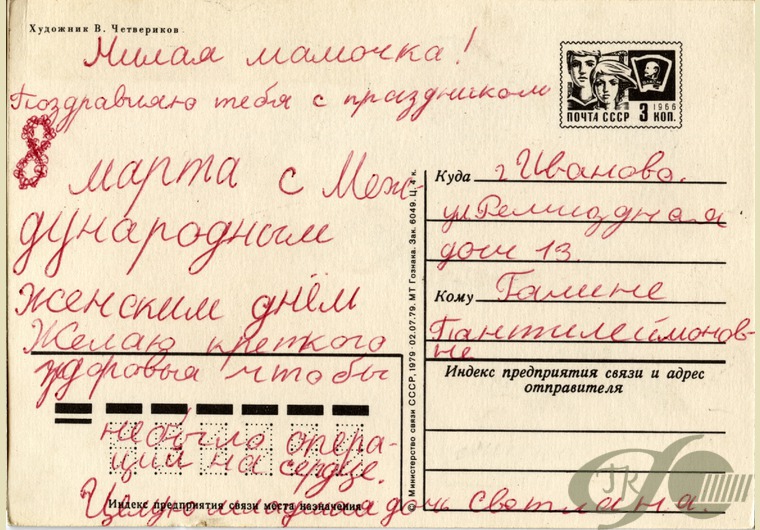 Художник В. Четвериков
Милая мамочка!
Поздравляю тебя с праздником
8 марта с Меж-
дународным
женским днём
Желаю крепкого
здоровья чтобы
не было опера-
ций на сердце.
Целую дочь Светлана.
ПОЧТА СССР 3 КОП.
1966
Куда г Иваново.
ул Ремиздная
дом 13.
Кому Галине
Пантилеймонов-
не
Индекс предприятия связи и адрес
отправителя
Индекс предприятия связи места назначения
© Министерство связи СССР, 1979 · 02.07.79. МТ Гознака. Зак. 6049. Ц. 4 к.